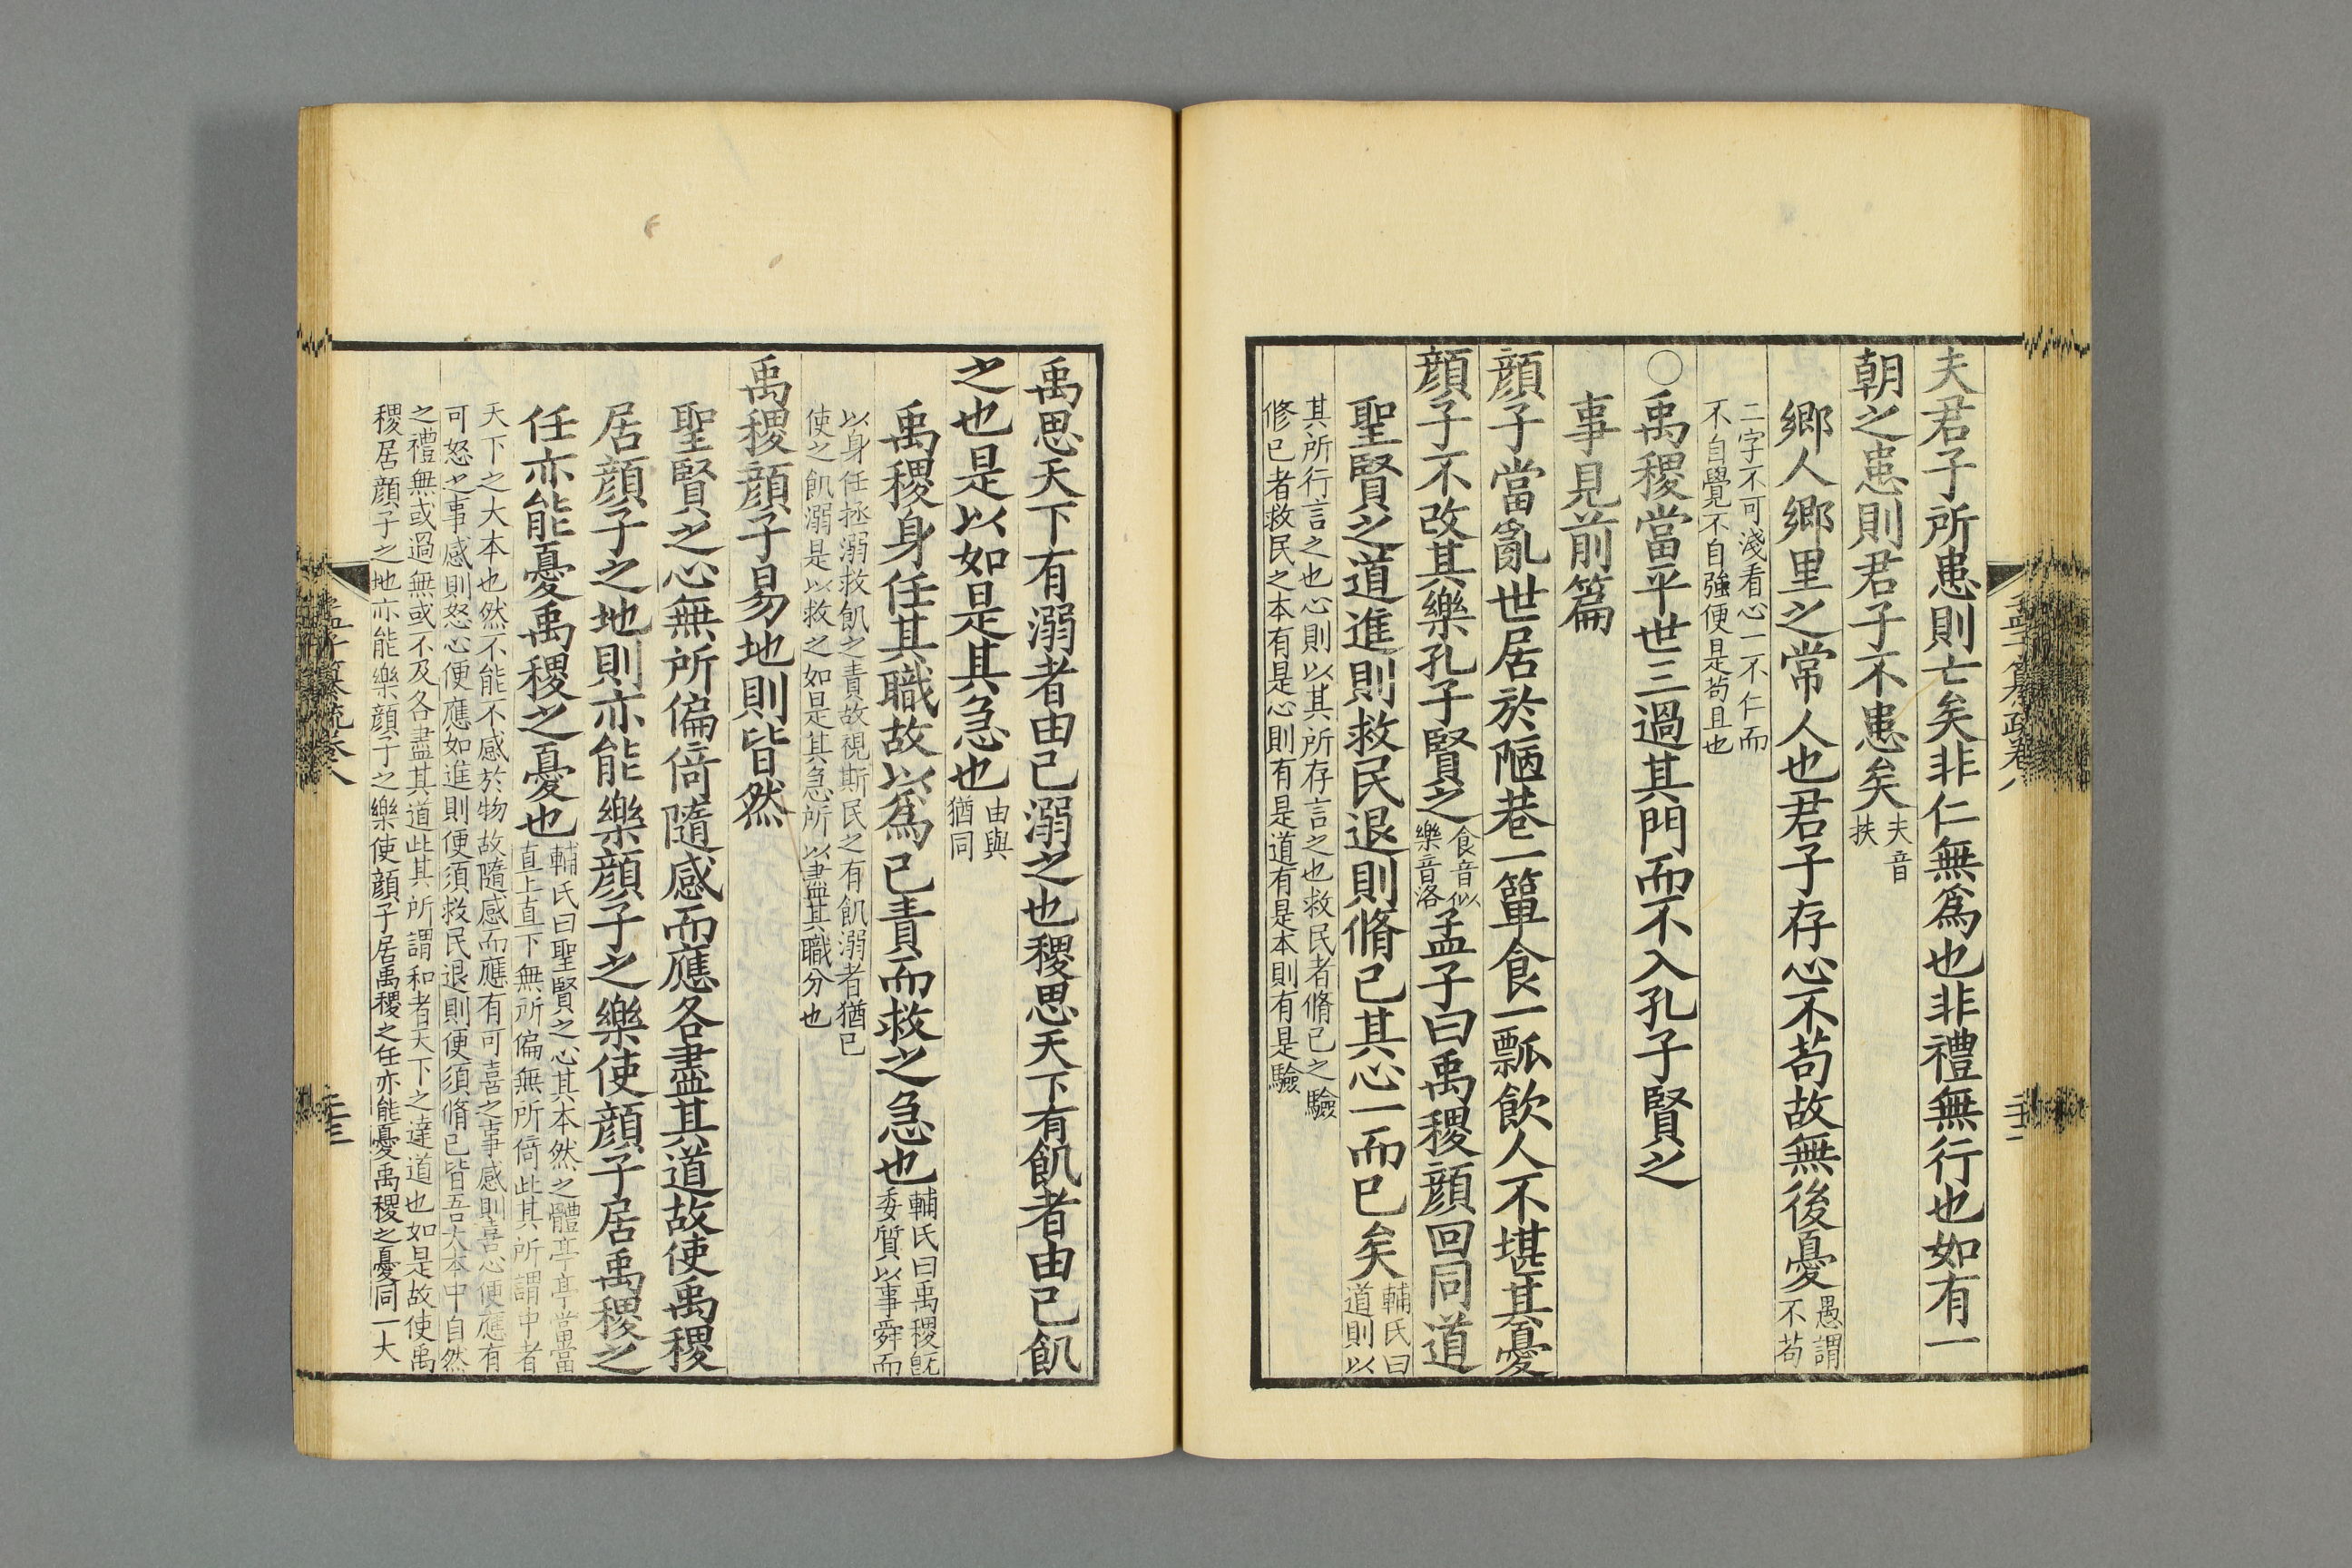 孟子纂疏卷八
夫君子所患則亡矣非仁無爲也非禮無行也如有一
朝之患則君子不患矣
夫音
扶
鄉人鄉里之常人也君子存心不苟故無後憂
愚謂
不苟
二字不可淺看心一不仁而
不自覺不自強便是苟且也
○禹稷當平世三過其門而不入孔子賢之
事見前篇
顔子當亂世居於陋巷一簞食一瓢飲人不堪其憂
顔子不改其樂孔子賢之
食音似
樂音洛
孟子曰禹稷顔回同道
聖賢之道進則救民退則脩己其心一而已矣
輔氏曰
道則以
其所行言之也心則以其所存言之也救民者脩己之驗
修已者救民之本有是心則有是道有是本則有是驗
禹思天下有溺者由己溺之也稷思天下有飢者由己飢
之也是以如是其急也
由與
猶同
禹稷身任其職故以爲己責而救之急也
輔氏曰禹稷旣
委質以事舜而
以身任拯溺救飢之責故視斯民之有飢溺者猶已
使之飢溺是以救之如是其急所以盡其職分也
禹稷顔子易地則皆然
聖賢之心無所偏倚隨感而應各盡其道故使禹稷
居顔子之地則亦能樂顔子之樂使顔子居禹稷之
任亦能憂禹稷之憂也
輔氏曰聖賢之心其本然之體亭亭當當
直上直下無所偏無所倚此其所謂中者
天下之大本也然不能不感於物故隨感而應有可喜之事感則喜心便應有
可怒之事感則怒心便應如進則便須救民退則便須脩已皆吾大本中自然
之禮無或過無或不及各盡其道此其所謂和者天下之達道也如是故使禹
稷居顔子之地亦能樂顔子之樂使顔子居禹稷之任亦能憂禹稷之憂同一大
孟子纂疏卷八